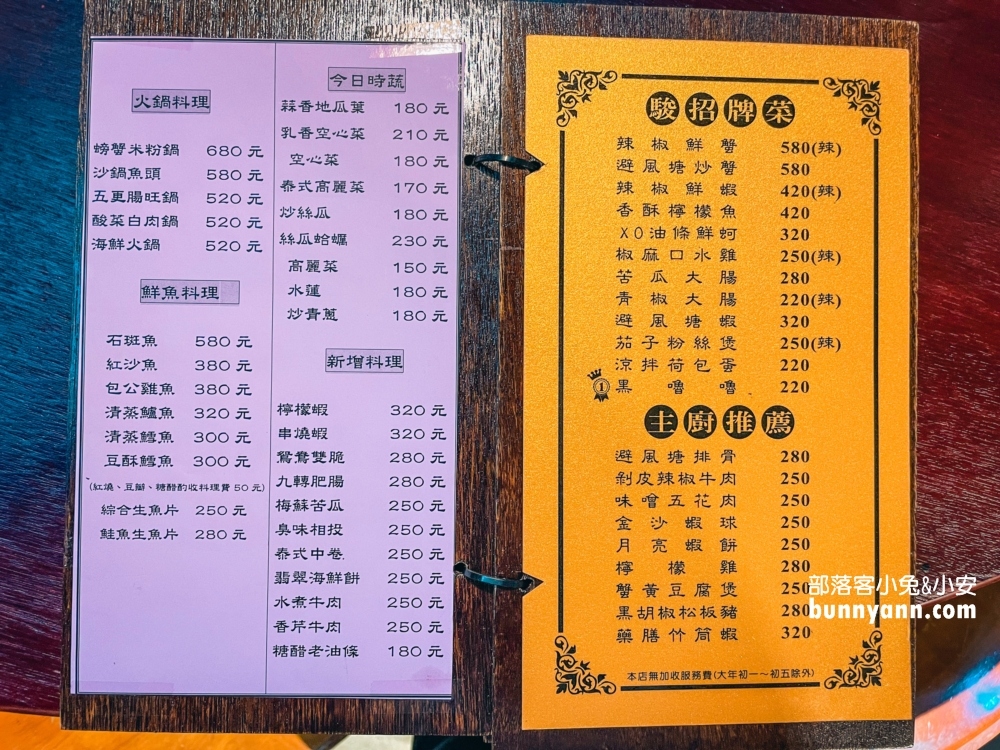 火鍋料理
螃蟹米粉鍋 680 元
沙鍋魚頭 580 元
五更腸旺鍋 520 元
酸菜白肉鍋 520 元
海鮮火鍋 520 元
鮮魚料理
石斑魚 580 元
紅沙魚 380 元
包公雞魚 380 元
清蒸鱸魚 320 元
清蒸鱈魚 300 元
豆酥鱈魚 300 元
(紅燒、豆瓣、糖醋酌收料理費 50 元)
綜合生魚片 250 元
鮭魚生魚片 280 元
今日時蔬
蒜香地瓜葉 180 元
乳香空心菜 210 元
空心菜 180 元
泰式高麗菜 170 元
炒絲瓜 180 元
絲瓜蛤蠣 230 元
高麗菜 150 元
水蓮 180 元
炒青蔥 180 元
新增料理
檸檬蝦 320 元
串燒蝦 320 元
鴛鴦雙脆 280 元
九轉肥腸 280 元
梅蘇苦瓜 250 元
臭味相投 250 元
泰式中卷 250 元
翡翠海鮮餅 250 元
水煮牛肉 250 元
香芹牛肉 250 元
糖醋老油條 180 元
駿招牌菜
辣椒鮮蟹 580(辣)
避風塘炒蟹 580
辣椒鮮蝦 420(辣)
香酥檸檬魚 420
XO油條鮮蚵 320
椒麻口水雞 250(辣)
苦瓜大腸 280
青椒大腸 220(辣)
避風塘蝦 320
茄子粉絲煲 250(辣)
涼拌荷包蛋 220
1 黑嚕嚕 220
主廚推薦
避風塘排骨 280
剝皮辣椒牛肉 250
味噌五花肉 250
金沙蝦球 250
月亮蝦餅 250
檸檬雞 280
蟹黃豆腐煲 250
黑胡椒松板豬 280
藥膳竹筒蝦 320
本店無加收服務費(大年初一~初五除外)
部落客小兔&小安
bunnyann.com